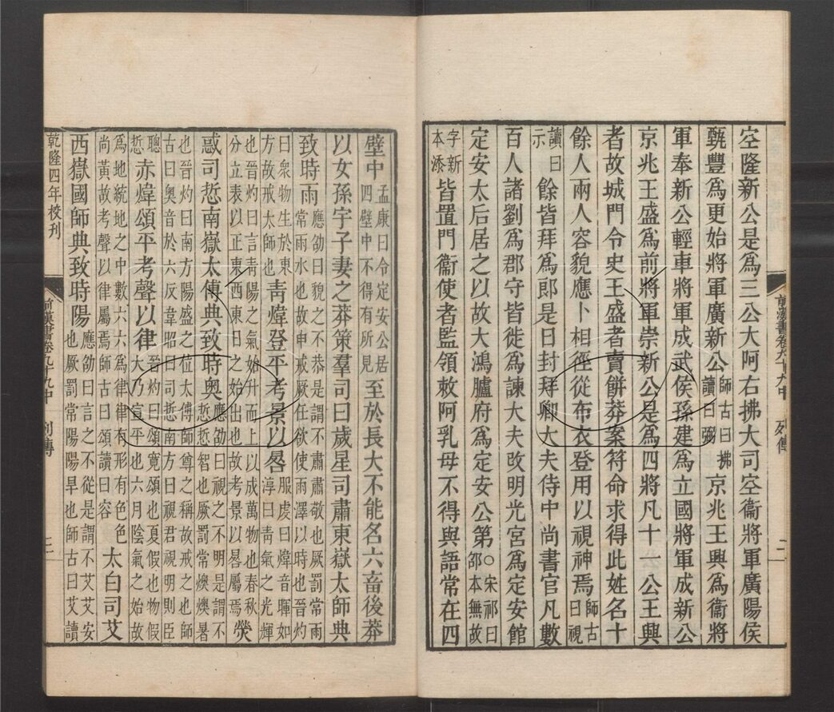 空隆新公是為三公大阿右拂大司空衞將軍廣陽侯
甄豐為更始將軍廣新公師古曰拂讀曰弼京兆王興為衞將
軍奉新公輕車將軍成武侯孫建為立國將軍成新公
京兆王盛為前將軍崇新公是為四將凡十一公王興
者故城門令史王盛者賣餅莽案符命求得此姓名十
餘人兩人容貌應卜相徑從布衣登用以視神焉師古曰視
讀曰示餘皆拜為郎是日封拜卿大夫侍中尚書官凡數
百人諸劉為郡守皆徙為諫大夫改明光宮為定安館
定安太后居之以故大鴻臚府為定安公第○宋祁曰邵本無故
字新本添皆置門衞使者監領敕阿乳母不得與語常在四
壁中孟康曰令定安公居四壁中不得有所見至於長大不能名六畜後莽
以女孫宇子妻之莽策羣司曰歲星司肅東嶽太師典
致時雨應劭曰貌之不恭是謂不肅肅敬也厥罰常雨常雨水也故申戒厥任欲使雨澤以時也晉灼
曰衆物生於東方故戒太師也青煒登平考景以晷服虔曰煒音暉如淳曰青氣之光輝
也晉灼曰言青陽之氣始升而上以成萬物也春秋分立表以正東西東日之始出也故考景以晷屬焉熒
惑司悊南嶽太傅典致時奧應劭曰視之不明是謂不悊悊智也厥罰常燠燠暑
也晉灼曰南方陽盛之位太傅師尊之稱故戒之也師古曰奧音於六反韋昭曰司悊南方日視君視明則臣
聰悊赤煒頌平考聲以律晉灼曰頌寬頌也夏假也物假大乃宣平也六月陰氣之始故
為地統地之中數六六為律律有形有色色尚黃故考聲以律屬焉師古曰頌讀曰容太白司艾
西嶽國師典致時陽應劭曰言之不從是謂不艾艾安也厥罰常陽陽旱也師古曰艾讀
乾隆四年校刊
前漢書卷九十九中 列傳